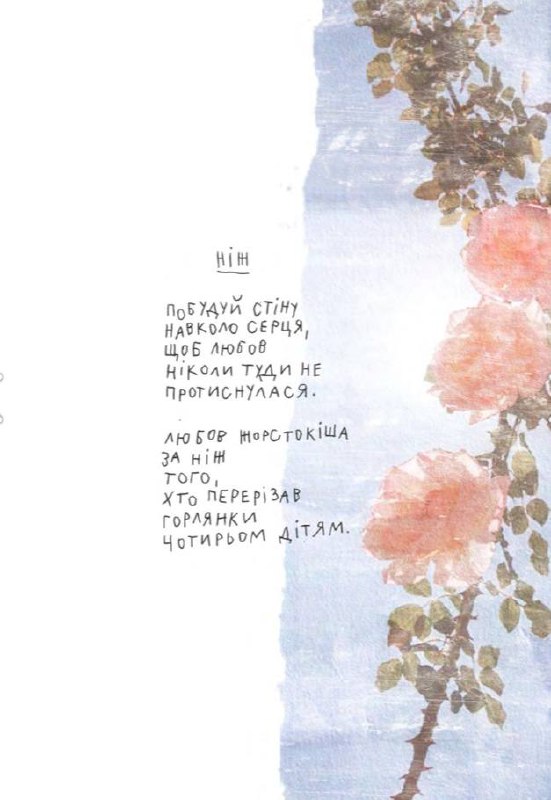 ніж
побудуй стіну
навколо серця,
щоб любов
ніколи туди не
протиснулася.
любов жорстокіша
за ніж
того,
хто перерізав
горлянки
чотирьом дітям.